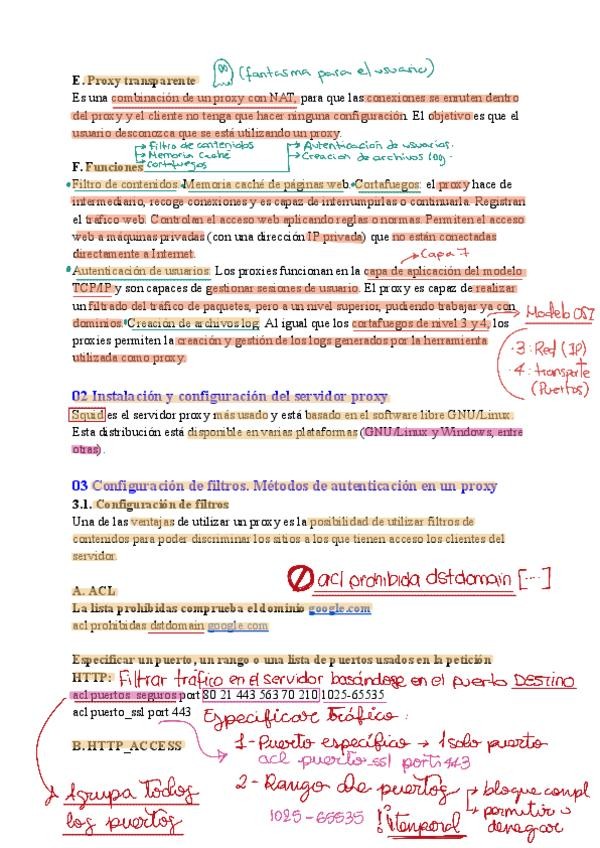 (fantasma para el usuario)
E. Proxy transparente
Es una combinación de un proxy con NAT, para que las conexiones se enruten dentro
del proxy y el cliente no tenga que hacer ninguna configuración. El objetivo es que el
usuario desconozca que se está utilizando un proxy.
→ Filtro de contenidos
→ Memoria Caché
→ Cortafuegos
→ Autenticación de usuarios.
→ Creación de archivos log.
F. Funciones
Filtro de contenidos. Memoria caché de páginas web. Cortafuegos: el proxy hace de
intermediario, recoge conexiones y es capaz de interrumpirlas o continuarla. Registran
el tráfico web. Controlan el acceso web aplicando reglas o normas. Permiten el acceso
web a máquinas privadas (con una dirección IP privada) que no están conectadas
directamente a Internet.
Capa 7
Autenticación de usuarios. Los proxies funcionan en la capa de aplicación del modelo
TCP/IP y son capaces de gestionar sesiones de usuario. El proxy es capaz de realizar
un filtrado del tráfico de paquetes, pero a un nivel superior, pudiendo trabajar ya con
dominios. Creación de archivos log. Al igual que los cortafuegos de nivel 3 y 4, los
proxies permiten la creación y gestión de los logs generados por la herramienta
utilizada como proxy.
Modelo OSI
· 3: Red (IP)
· 4: transporte
(Puertos)
02 Instalación y configuración del servidor proxy
Squid es el servidor proxy más usado y está basado en el software libre GNU/Linux.
Esta distribución está disponible en varias plataformas (GNU/Linux y Windows, entre
otras).
03 Configuración de filtros. Métodos de autenticación en un proxy
3.1. Configuración de filtros
Una de las ventajas de utilizar un proxy es la posibilidad de utilizar filtros de
contenidos para poder discriminar los sitios a los que tienen acceso los clientes del
servidor.
acl prohibida dstdomain [...]
A. ACL
La lista prohibidas comprueba el dominio google.com
acl prohibidas dstdomain google.com
Especificar un puerto, un rango o una lista de puertos usados en la petición
HTTP: Filtrar tráfico en el servidor basándose en el puerto DESTINO
acl puertos_seguros port 80 21 443 563 70 210 1025-65535
acl puerto_ssl port 443
Especificar tráfico:
1- Puerto específico → 1 solo puerto
acl puerto_ssl port 443
B.HTTP_ACCESS
2- Rango de puertos
→ bloque compl
→ permitir o
denegar
1025-65535
Agrupa todos
los puertos